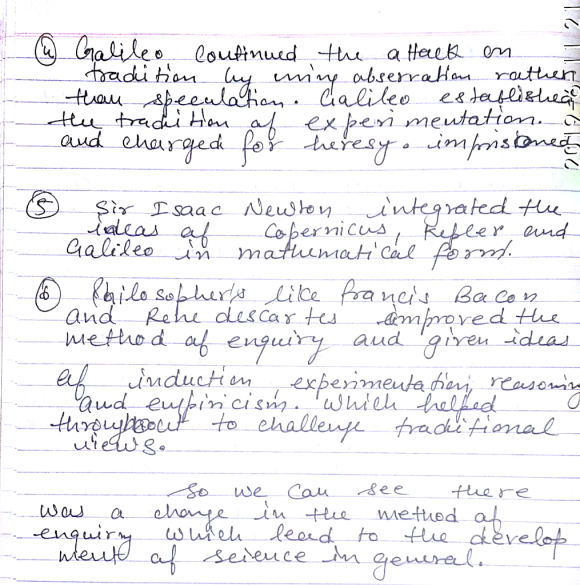 ④ Galileo continued the attack on
tradition by using observation rather
than speculation. Galileo established
the tradition of experimentation.
and charged for heresy. imprisoned
⑤ Sir Isaac Newton integrated the
ideas of Copernicus, Kepler and
Galileo in mathematical form.
⑥ Philosopher's like francis Bacon
and Rene descartes improved the
method of enquiry and given ideas
of induction, experimentation, reasoning
and empiricism. Which helped
throughout to challenge traditional
views.
So we can see there
was a change in the method of
enquiry which lead to the develop
ment of science in general.